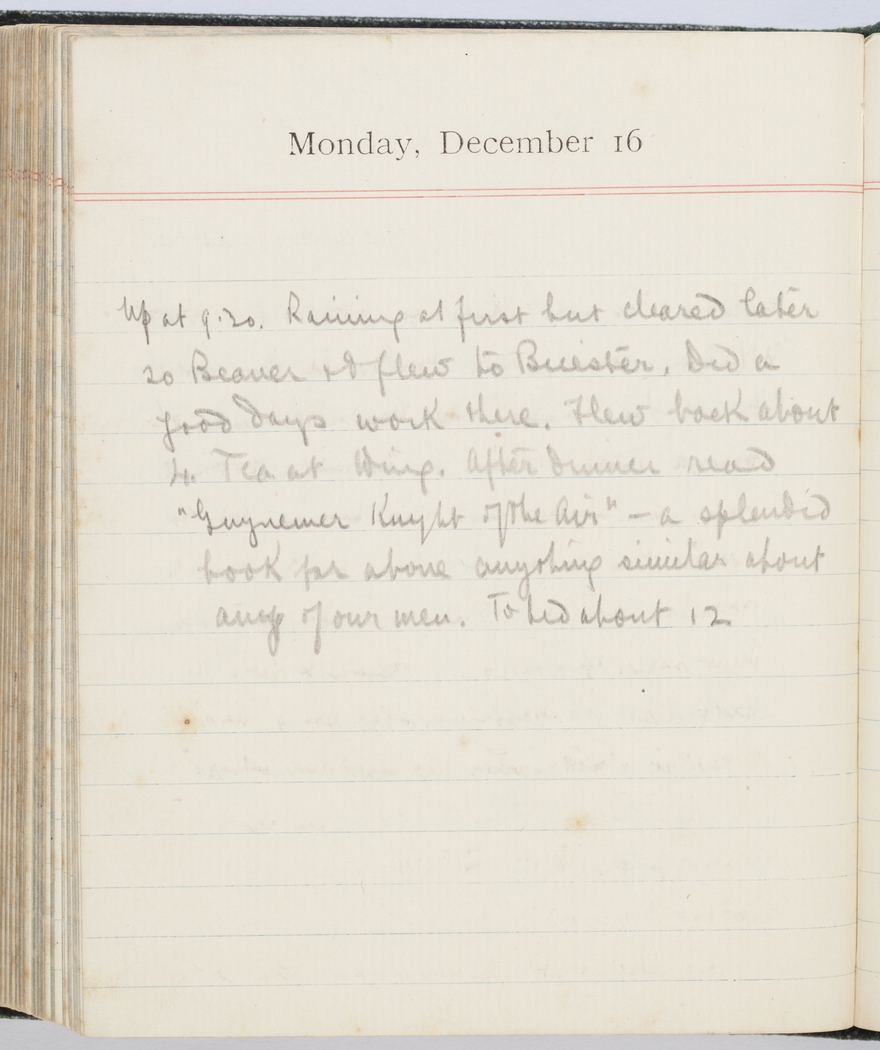 Monday, December 16
Up at 9.20. Raining at first but cleared later
so Beaver & I flew to Bicester. Did a
good days work there. Flew back about
4. Tea at Wing. After dinner read
"Guynemer Knight of the Air" – a splendid
book far above anything similar about
any of our men. To bed about 12